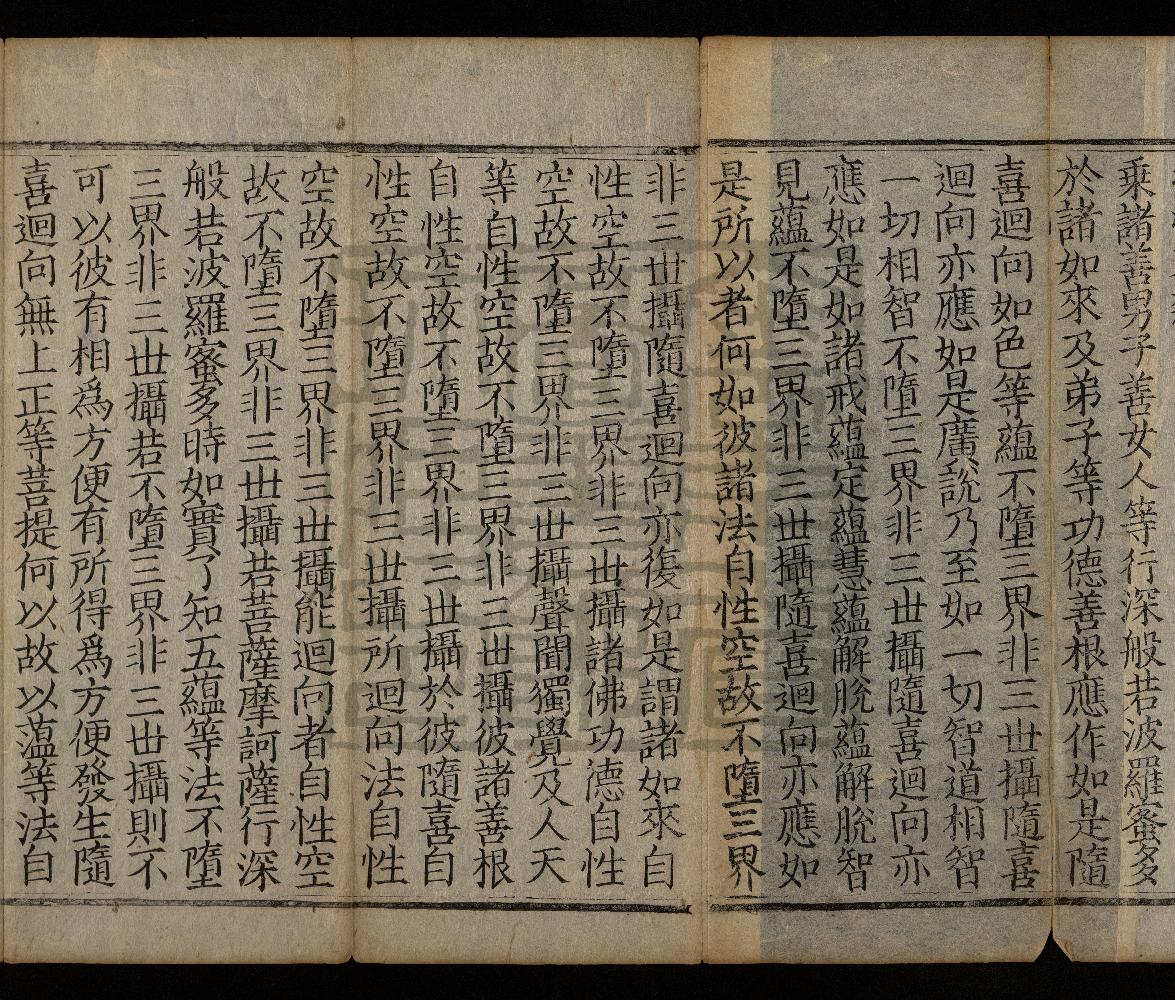 乗諸善男子善女人等行深般若波羅蜜多
於諸如來及弟子等功德善根應作如是隨
喜迴向如色等蘊不墮三界非三世攝隨喜
迴向亦應如是廣說乃至如一切智道相智
一切相智不墮三界非三世攝隨喜迴向亦
應如是如諸戒蘊定蘊慧蘊解脫蘊解脫智
見蘊不墮三界非三世攝隨喜迴向亦應如
是所以者何如彼諸法自性空故不墮三界
非三世攝隨喜迴向亦復如是謂諸如來自
性空故不墮三界非三世攝諸佛功德自性
空故不墮三界非三世攝聲聞獨覺及人天
等自性空故不墮三界非三世攝彼諸善根
自性空故不墮三界非三世攝於彼隨喜自
性空故不墮三界非三世攝所迴向法自性
空故不墮三界非三世攝能迴向者自性空
故不墮三界非三世攝若菩薩摩訶薩行深
般若波羅蜜多時如實了知五蘊等法不墮
三界非三世攝若不墮三界非三世攝則不
可以彼有相爲方便有所得爲方便發生隨
喜迴向無上正等菩提何以故以薀等法自